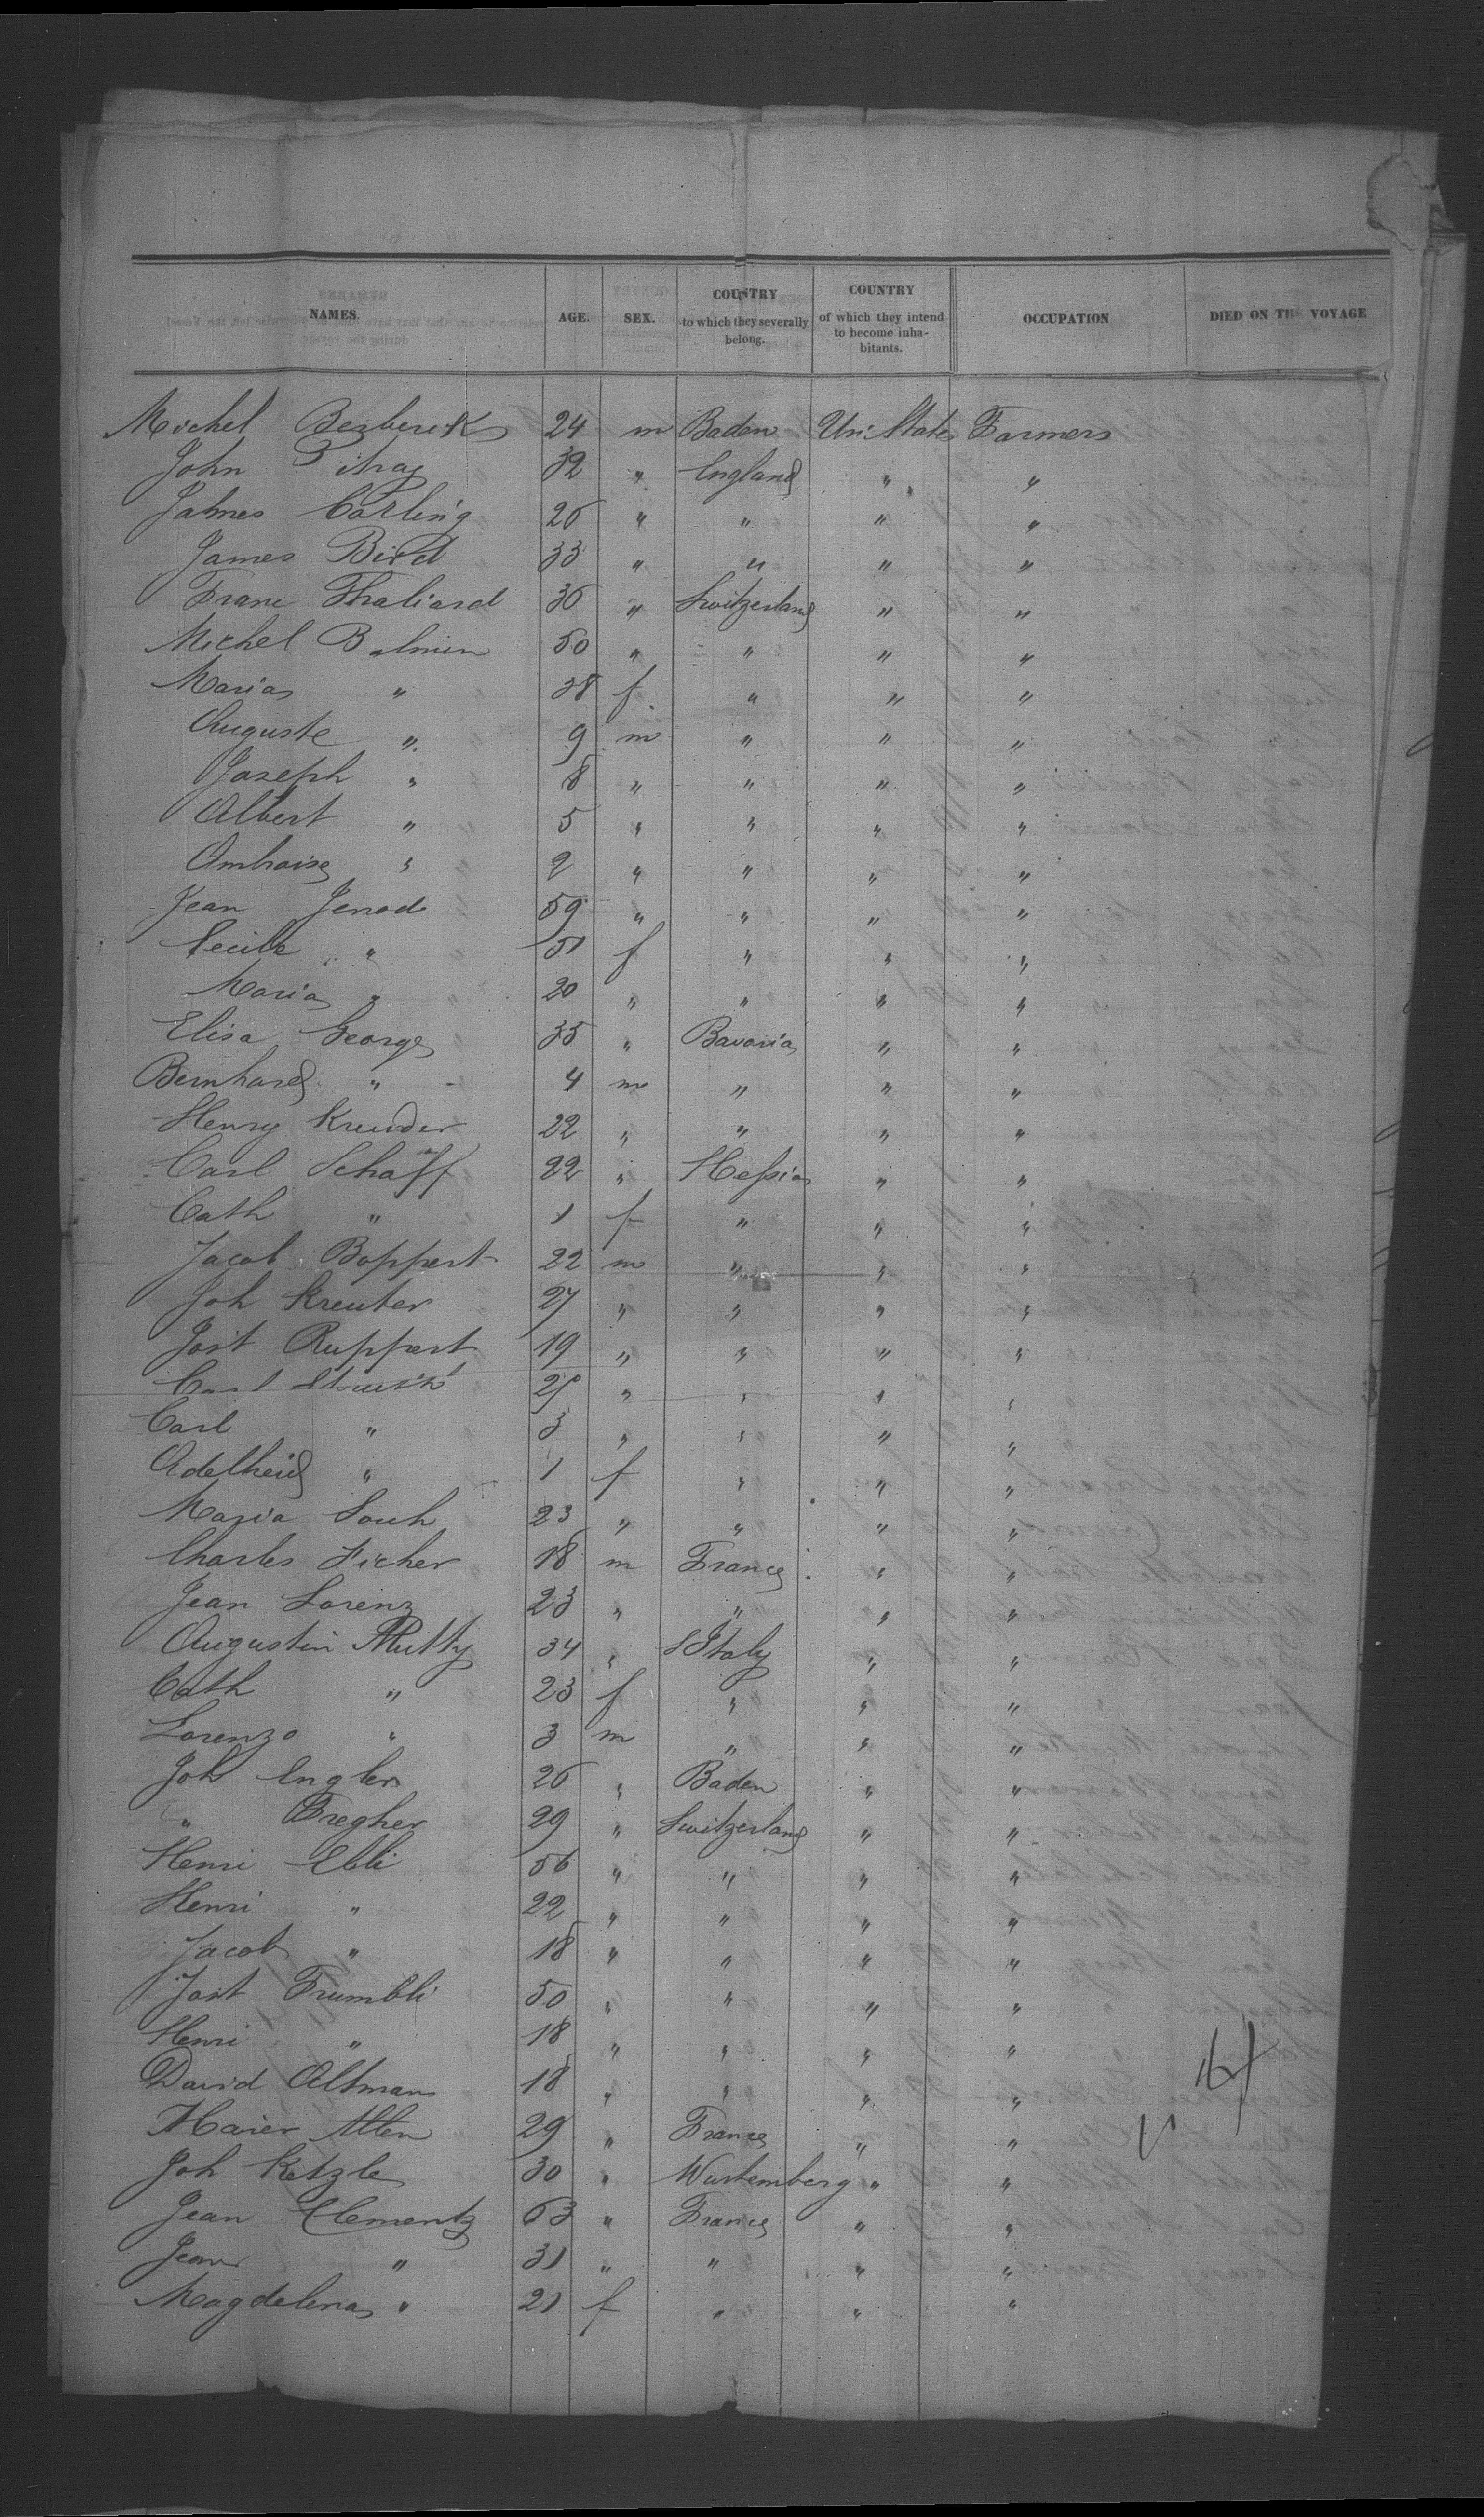 NAMES. AGE. SEX. COUNTRY to which they severally belong. COUNTRY of which they intend to become inhabitants. OCCUPATION DIED ON THE VOYAGE
Michel 24 m Baden Uni States Farmers
John Pitray 32 " England " "
James Carling 26 " " " "
James Bird 33 " " " "
Franc Thaliard 36 " Switzerland " "
Michel Balmin 50 " " " "
Maria " 38 f " " "
Auguste " 9 m " " "
Joseph " 8 " " " "
Albert " 5 " " " "
Ambroise " 2 " " " "
Jean Jenod 59 " " " "
Cecile " 51 f " " "
Maria " 20 " " " "
Elisa George 35 " Bavaria " "
Bernhard " 4 m " " "
Henry Kreuder 22 " " " "
Carl Schäff 22 " Hessia " "
Cath " 1 f " " "
Jacob Boppert 22 m " " "
Joh Kreuter 27 " " " "
Jost Ruppert 19 " " " "
Carl " " " "
Carl " 3 " " " "
Adelheid " 1 f " " "
Maria Souh 23 " " " "
Charles Ficher 18 m France " "
Jean Lorenz 23 " " " "
Augustin Mutty 34 " Italy " "
Cath " 23 f " " "
Lorenzo " 3 m " " "
Joh Engler 26 " Baden " "
" Tregher 29 " Switzerland " "
Henri Ebli 56 " " " "
Henri " 22 " " " "
Jacob " 18 " " " "
Jost Trumbli 50 " " " "
Henri " 18 " " " "
David Altman 18 " " " "
Maier Atten 29 " France " "
Joh Ketzle 30 " Wurtemberg " "
Jean Clementz 63 " France " "
Jean " 31 " " " "
Magdelena " 21 f " " "